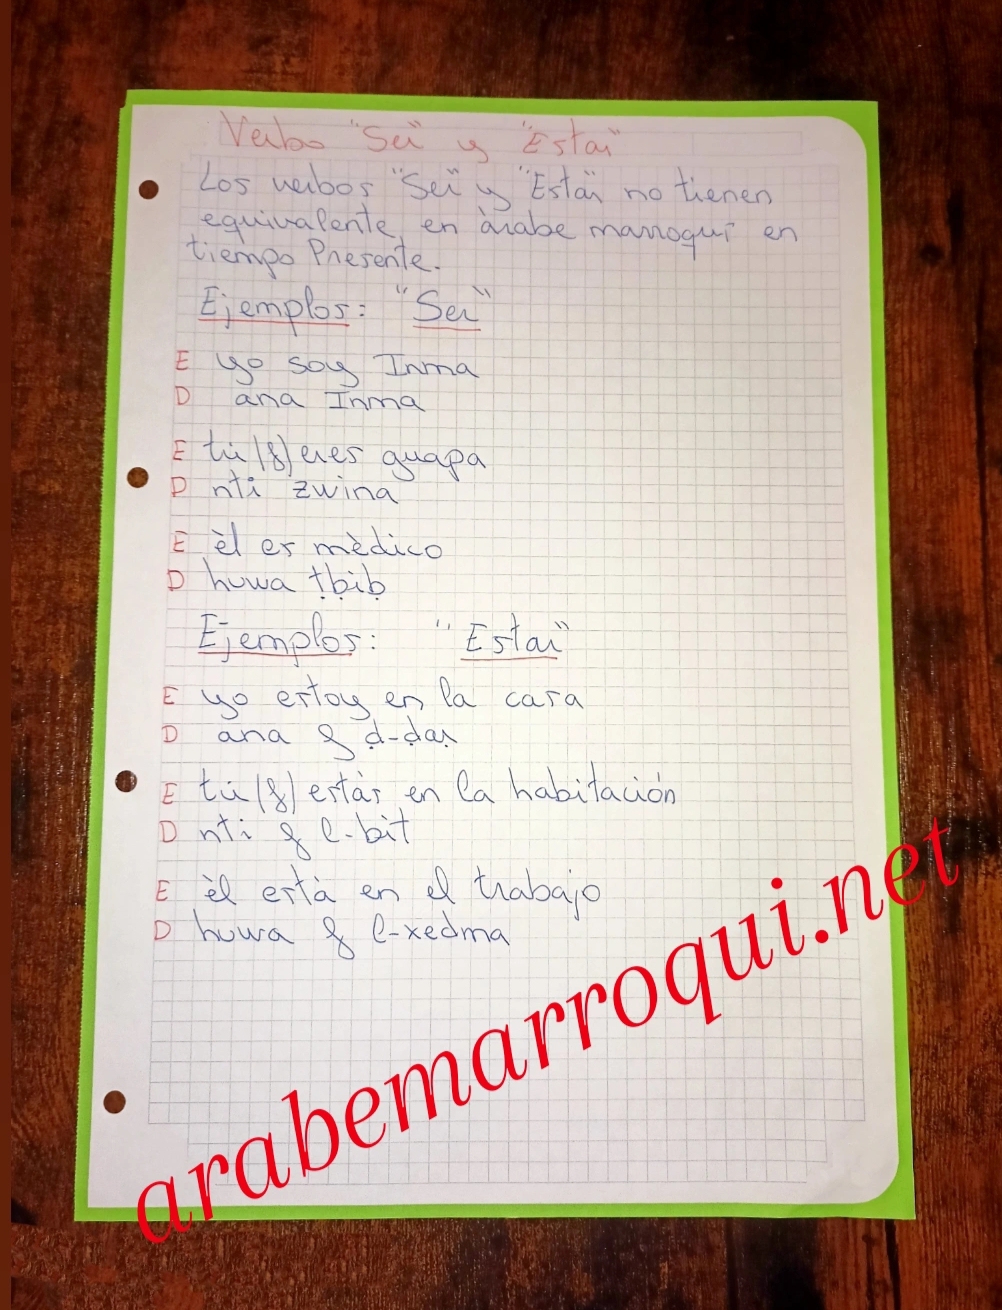 Verbo "Ser" y "Estar"
Los verbos "Ser" y "Estar" no tienen
equivalente en àrabe marroquí en
tiempo Presente.
Ejemplos: "Ser"
E yo soy Inma
D ana Inma
E tú (f) eres guapa
D nti zwina
E èl es mèdico
D huwa ṭḅiḅ
Ejemplos: "Estar"
E yo estoy en la casa
D ana f ḍ-ḍaṛ
E tú (f) estàs en la habitación
D nti f l-bit
E èl està en el trabajo
D huwa f l-xedma
arabemarroqui.net